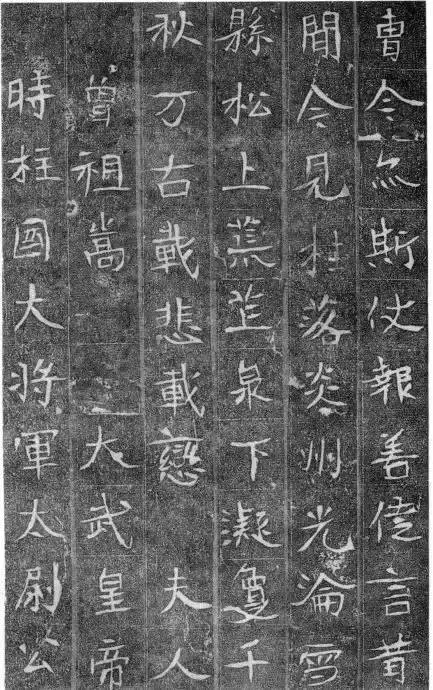 曹令斯仗報善言昔
聞今見桂落炎州光淪雪
縣松上荒芒泉下凝夐千
秋万古載悲載戀 夫人
曾祖嵩 大武皇帝
時柱國大將軍太尉公